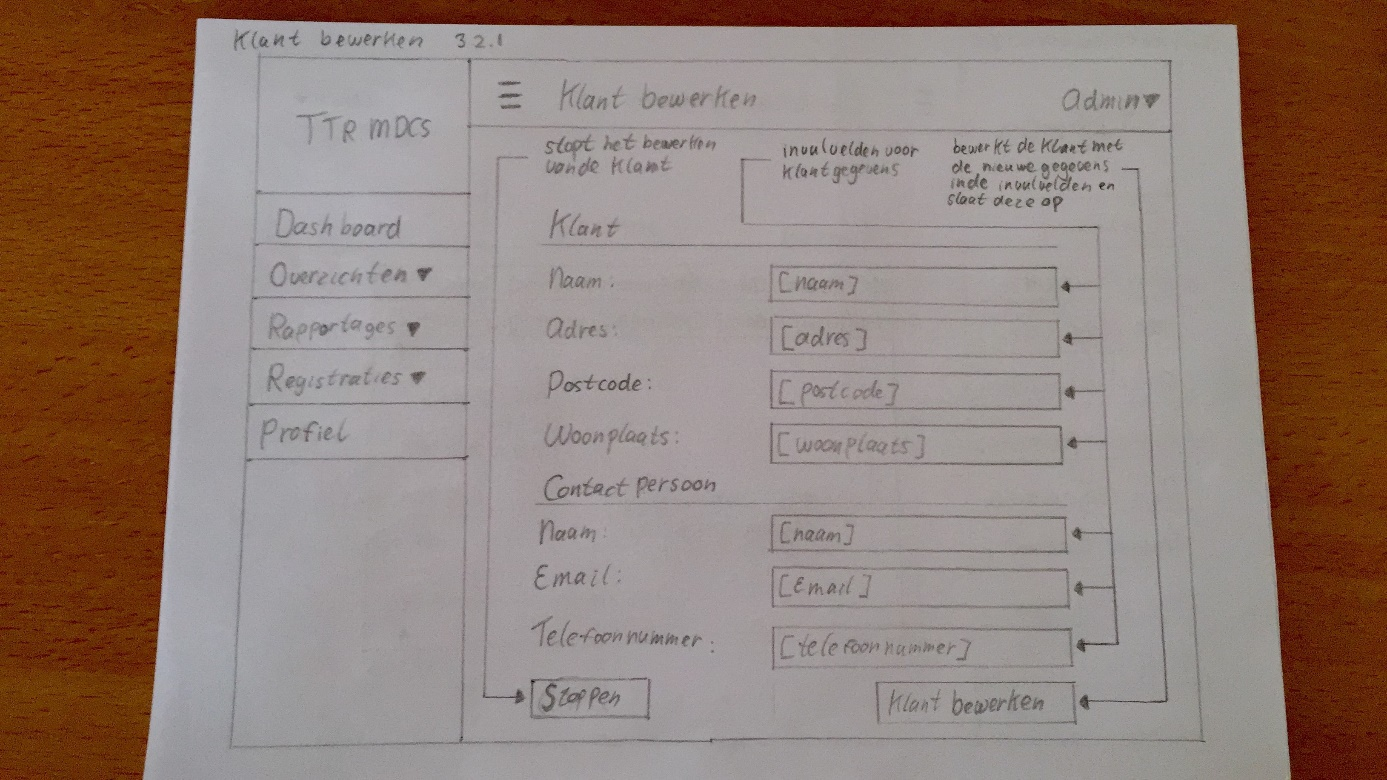 Klant bewerken 3.2.1
TTR MDCS
☰ Klant bewerken
Admin▼
Dashboard
Overzichten ▼
Rapportages ▼
Registraties ▼
Profiel
stopt het bewerken
van de Klant
invulvelden voor
Klantgegevens
bewerkt de Klant met
de nieuwe gegevens
in de invulvelden en
slaat deze op
Klant
Naam: [naam]
Adres: [adres]
Postcode: [postcode]
Woonplaats: [woonplaats]
Contact persoon
Naam: [naam]
Email: [Email]
Telefoonnummer: [telefoonnummer]
Stoppen
Klant bewerken